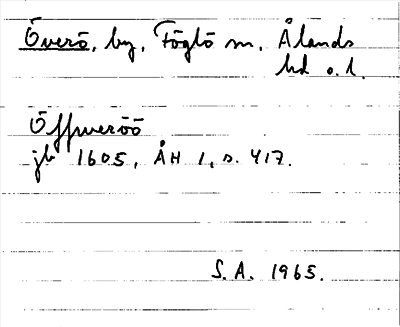 Överö, by, Föglö sn, Ålands
hd o. l.
Öffweröö
jb 1605, ÅH 1, s. 417.
S.A. 1965.